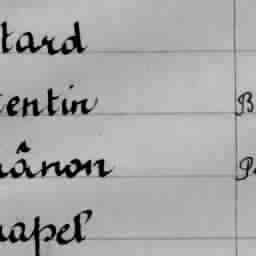 tard
entin B
ânon P
apel